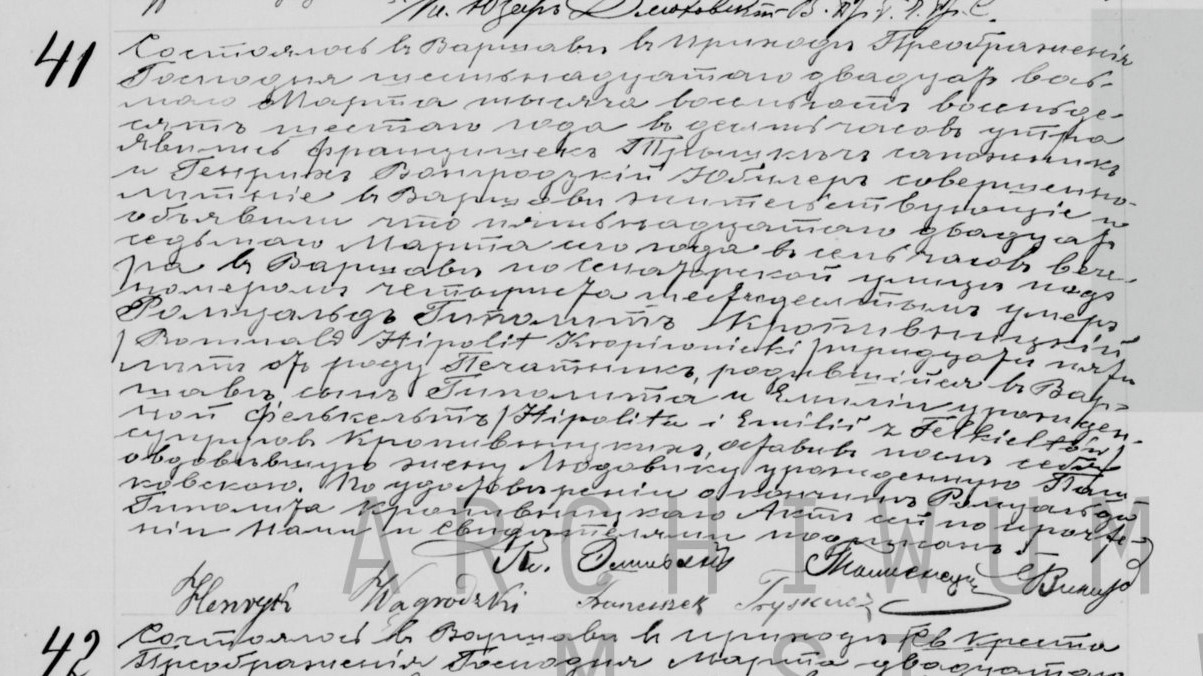 41 Состоялось въ Варшавѣ въ приходѣ Преображенія
Господня шестьнадцатаго двадцать вось-
маго Марта тысяча восемьсотъ восемьде-
сятъ шестаго года въ десять часовъ утра
Явились Францишекъ Трыцкъ сапожникъ
и Генрихъ Вонгродзкій Ювилеръ совершенно-
лѣтніе въ Варшавѣ жительствующіе и
объявили что пятьнадцатаго двадцать
седьмаго Марта сего года въ семь часовъ вече-
ра въ Варшавѣ по Сенаторской улицѣ подъ
номеромъ четыреста шестидесятымъ умеръ
Ромуальдъ Гиполитъ Кропивницкій
/Romuald Hipolit Kropiwnicki/ тридцати пяти
лѣтъ отъ роду Печатникъ, родившійся въ Вар-
шавѣ, сынъ Гиполита и Емиліи урожден-
ной Фелькельтъ /Hipolita i Emilii z Felkieltów/
супруговъ Кропивницкихъ, оставивъ послѣ себя
овдовѣвшую жену Людовику урожденную
ковскою. По удостовѣреніи о кончинѣ Ромуальда
Гиполита Кропивницкаго Актъ сей по прочте-
ніи Нами и свидѣтелями подписанъ.
Кс.
Henryk Wągrodzki Franciszek
42 Состоялось въ Варшавѣ въ приходѣ Св Креста
Преображенія Господня Марта двадцатаго
ARCHIWUM
M ST W